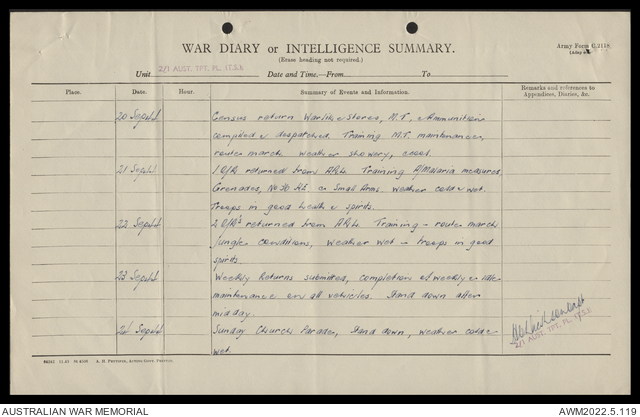 WAR DIARY or INTELLIGENCE SUMMARY.
(Erase heading not required.)
Army Form C.2118
Unit 2/1 AUST. TPT. PL. (T.S.)
Date and Time.—From To
Place. Date. Hour. Summary of Events and Information. Remarks and references to Appendices, Diaries, &c.
20 Sept Census return Warlike Stores, M.T., & Ammunition
compiled & despatched. Training M.T. maintenance,
route march. weather showery, cool.
21 Sept 1 O/R returned from Training A/Malaria measures,
Grenades, No 36 H.E. Small Arms. weather cold & wet.
Troops in good health & spirits.
22 Sept 2 O/R's returned from Training - route march
jungle conditions, weather wet - troops in good
spirits.
23 Sept Weekly Returns submitted, completion of weekly &
maintenance on all vehicles. Stand down after
midday.
24 Sept Sunday Church Parade, Stand down, weather cold &
wet.
2/1 AUST. TPT. PL. (T.S.)
AUSTRALIAN WAR MEMORIAL
AWM2022.5.119